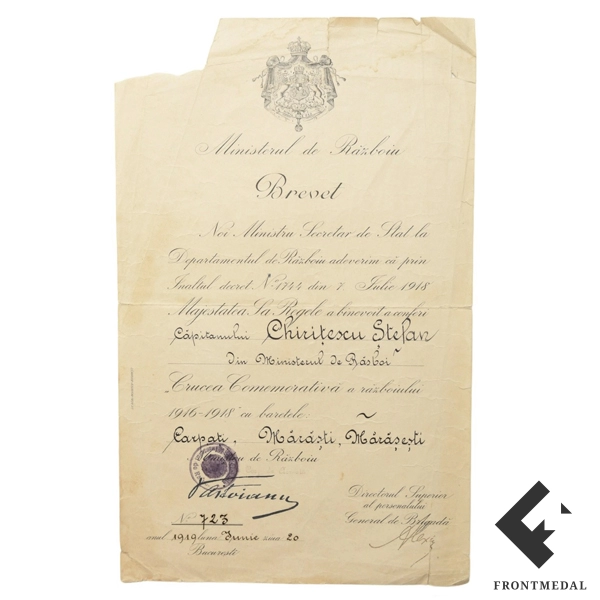 Ministerul de Războiu
Brevet
Noi Ministru Secretar de Stat la
Departamentul de Războiu adeverim că prin
Înaltul decret No. 1744 din 7 Iulie 1918
Majestatea Sa Regele a binevoit a conferi
Căpitanului Chirițescu Ștefan
Din Ministerul de Răsboi
"Crucea Comemorativă a războiului
1916-1918" cu baretele:
Carpați, Mărăști, Mărășești
de Războiu
Directorul Superior
al personalului
General de Brigadă
No 723
anul 1919 luna Iunie ziua 20
București
FRONTMEDAL